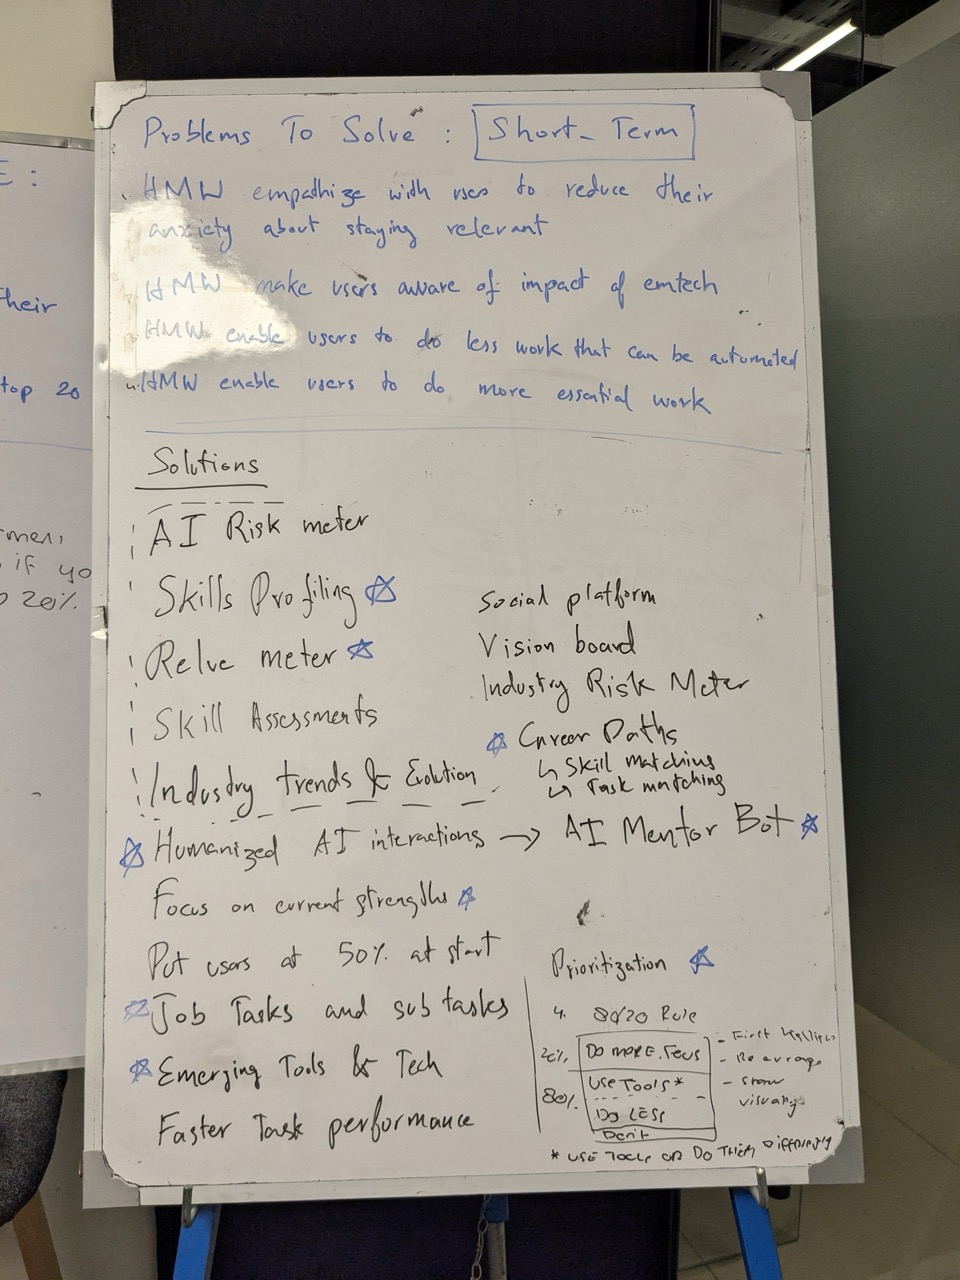 Problems To Solve : Short-Term
HMW empathize with users to reduce their
anxiety about staying relevant
HMW make users aware of impact of emtech
HMW enable users to do less work that can be automated
HMW enable users to do more essential work
Solutions
AI Risk meter
Skills Profiling
Relve meter
Skill Assessments
Industry trends & Evolution
Humanized AI interactions → AI Mentor Bot
Focus on current strengths
Put users at 50% at start
Job Tasks and sub tasks
Emerging Tools & Tech
Faster Task performance
Social platform
Vision board
Industry Risk Meter
Career Paths
↳ Skill matching
↳ Task matching
Prioritization
80/20 Rule
20% Do more. Focus
80% Use Tools*
Do Less
Don't
- First
- Rearrange
- Show
visually
* USE TOOLS OR DO THEM DIFFERENTLY
E :
their
top 20
if yo
20%